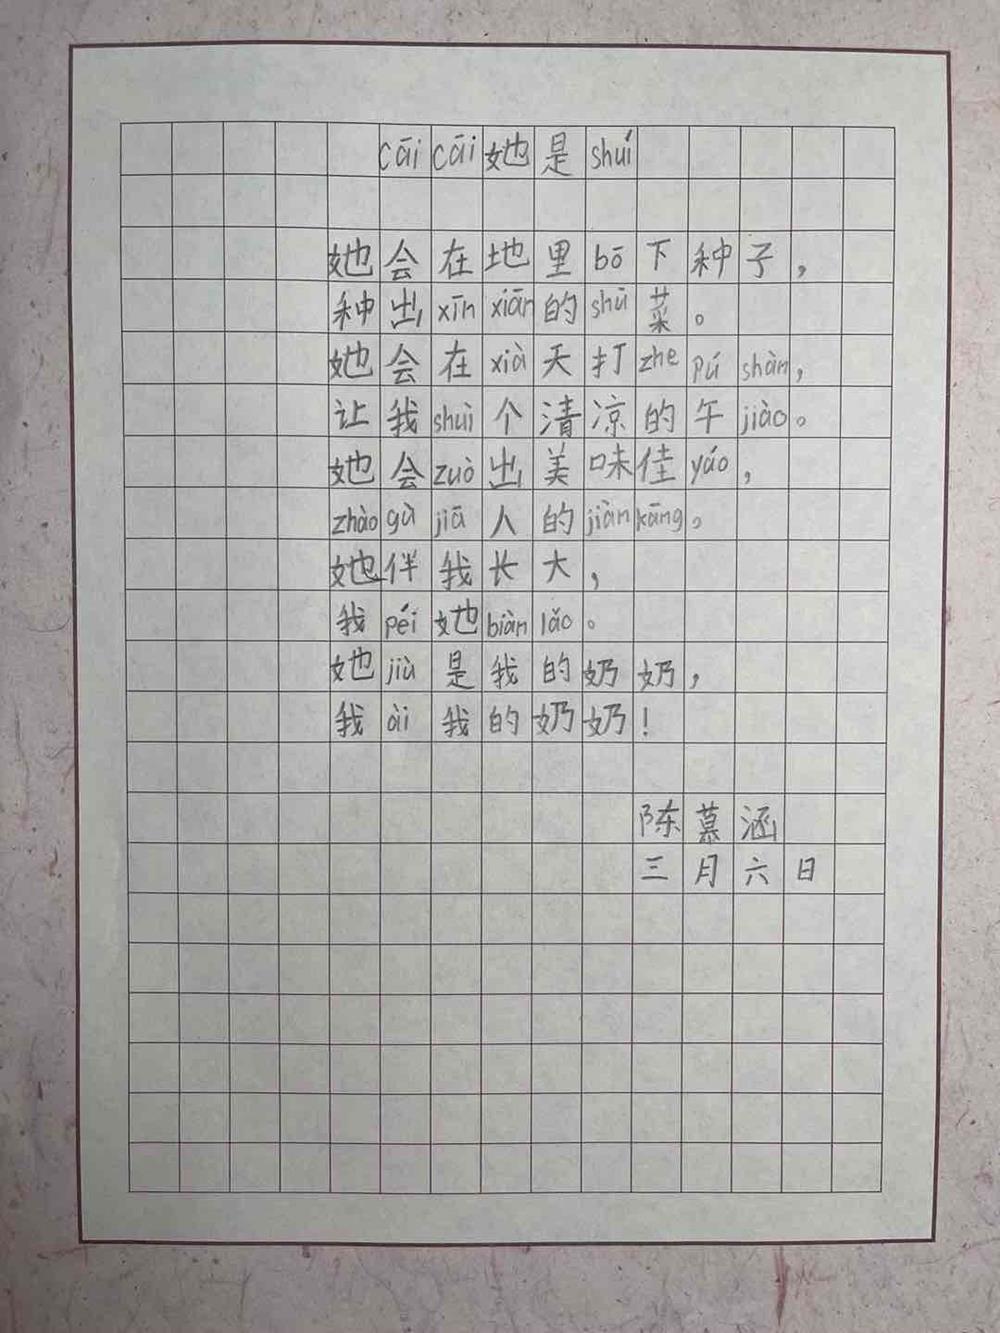 cāi cāi 她是 shuí
她会在地里 bō 下种子，
种出 xīn xiān 的 shū 菜。
她会在 xià 天打 zhe pú shàn，
让我 shuì 个清凉的午 jiào。
她会 zuò 出美味佳 yáo，
zhào gù jiā 人的 jiàn kāng。
她伴我长大，
我 péi 她 biàn lǎo。
她 jiù 是我的奶奶，
我 ài 我的奶奶！
陈慕涵
三月六日